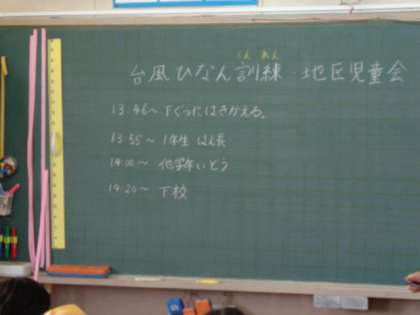 くん れん
台風ひなん訓練 地区児童会
13:46～ 下ぐつにはきかえる。
13:55～ 1年生 はん長
14:00～ 他学年いどう
14:20～ 下校